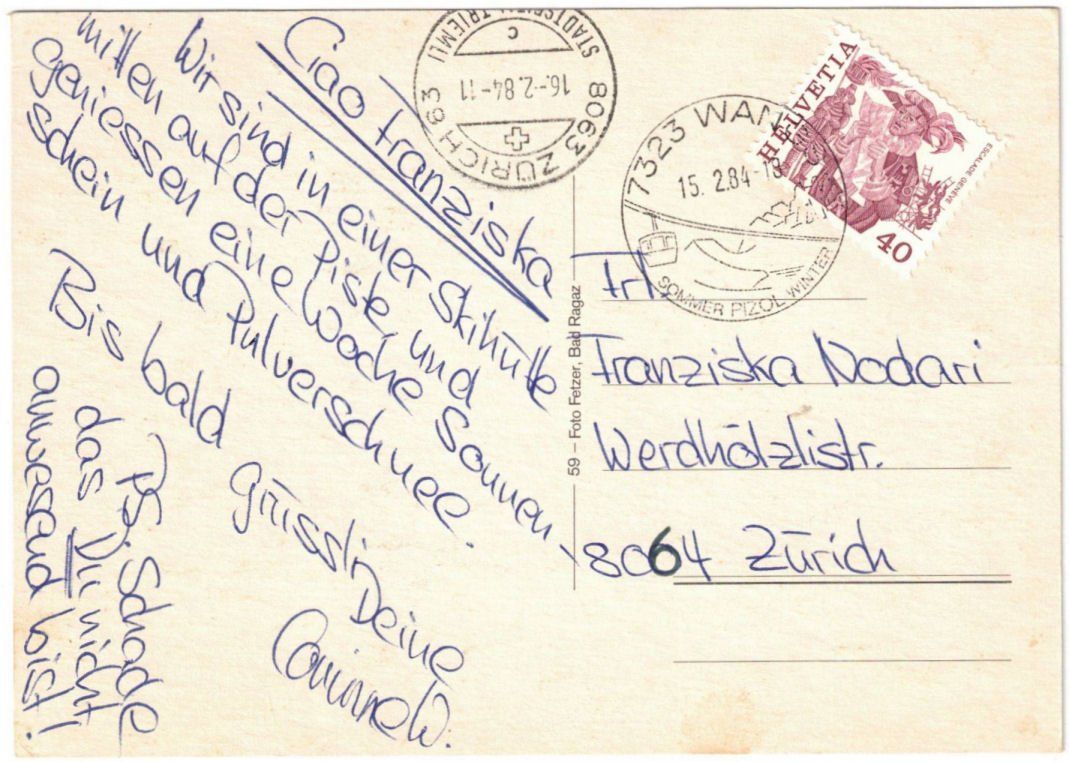 Ciao Franziska
Wir sind in einer Skihütte
mitten auf der Piste, und
geniessen eine Woche Sonnen-
schein und Pulverschnee.
Bis bald
grüssli, Deine
Corinne W.
PS. Schade
das Du nicht
anwesend bist!
STADTSPITAL TRIEMLI
C
16.-2.84-11
8063 ZÜRICH 63
7323 WAN
15. 2.84-18
SOMMER PIZOL WINTER
HELVETIA
ESCALADE GENÈVE
40
59 – Foto Fetzer, Bad Ragaz
Frl.
Franziska Nodari
Werdhölzlistr.
8064 Zürich